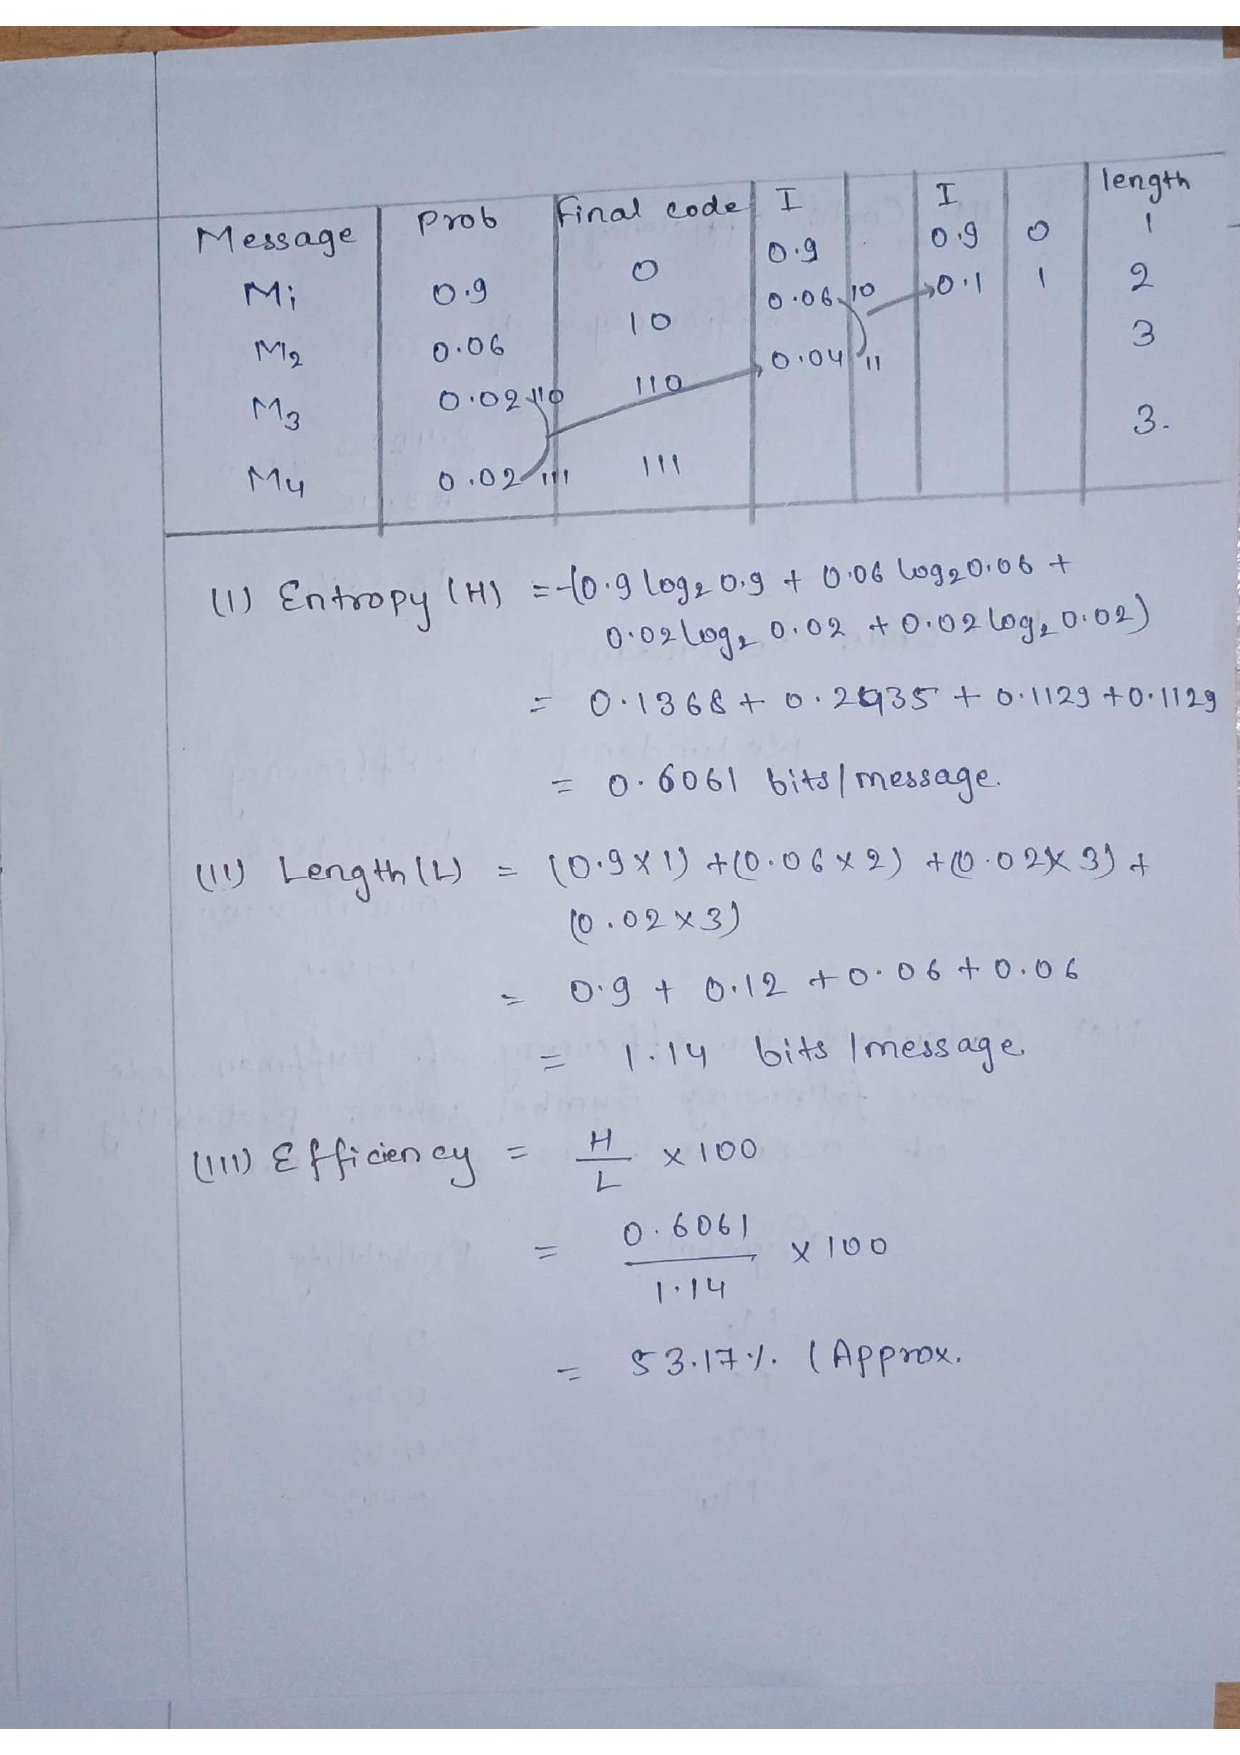 Message Prob Final code I I length
M1 0.9 0 0.9 0.9 0 1
M2 0.06 10 0.06 10 0.1 1 2
M3 0.02 110 110 0.04 11 3
M4 0.02 111 111 3.
(I) Entropy (H) = -(0.9 log₂ 0.9 + 0.06 log₂0.06 +
0.02 log₂ 0.02 + 0.02 log₂ 0.02)
= 0.1368 + 0.2435 + 0.1129 + 0.1129
= 0.6061 bits/message.
(II) Length (L) = (0.9 x 1) + (0.06 x 2) + (0.02 x 3) +
(0.02 x 3)
= 0.9 + 0.12 + 0.06 + 0.06
= 1.14 bits/message
(III) Efficiency = H/L x 100
= 0.6061/1.14 x 100
= 53.17%. (Approx.